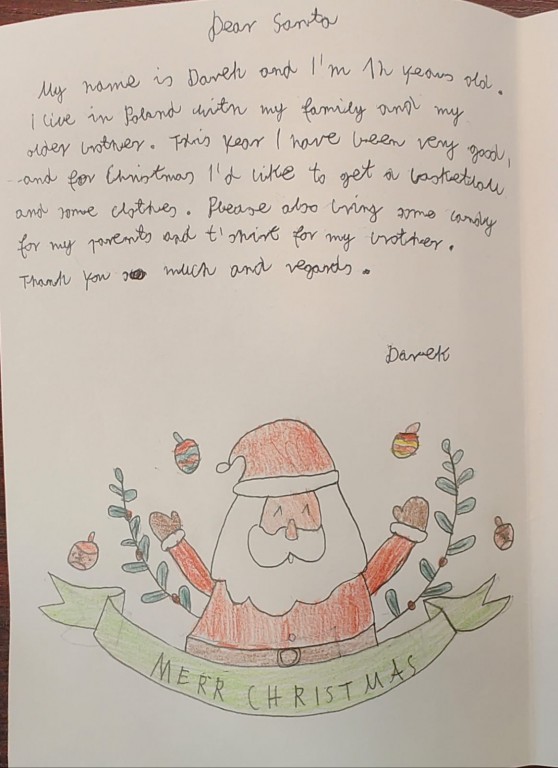 Dear Santa
My name is Darek and I'm 12 years old.
I live in Poland with my family and my
older brother. This year I have been very good,
and for Christmas I'd like to get a basketball
and some clothes. Please also bring some candy
for my parents and t'shirt for my brother.
Thank you so much and regards.
Darek
MERR CHRISTMAS